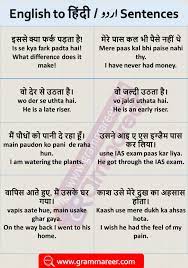 English to हिंदी / اردو Sentences
इससे क्या फर्क पड़ता है!
Is se kya fark padta hai!
What difference does it
make!
मेरे पास कल भी पैसे नहीं थे
Mere paas kal bhi paise nahi
thy.
I have never had money.
वो देर से उठता है।
wo der se uthta hai.
He is a late-riser.
वो जल्दी उठता है।
vo jaldi uthata hai.
He is an early riser.
मैं पौधों को पानी दे रहा हूँ।
main paudon ko pani de
raha hun.
I am watering the plants.
उसने आइ ए एस इग्ज़ैम पास कर
लिया।
usne IAS exam paas kar liya.
He got through the IAS exam.
वापिस आते हुए, मैं उसके घर
गया।
vapis aate hue, main uske
ghar gaya.
On the way back I went to his
home.
काश उसे मेरे दुख का अहसास
होता।
Kaash use mere dukh ka ahsas
hota.
I wish he had the feel of my
pain.
www.grammareer.com